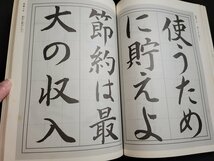 使うため
に貯えよ
節約は最
大の収入